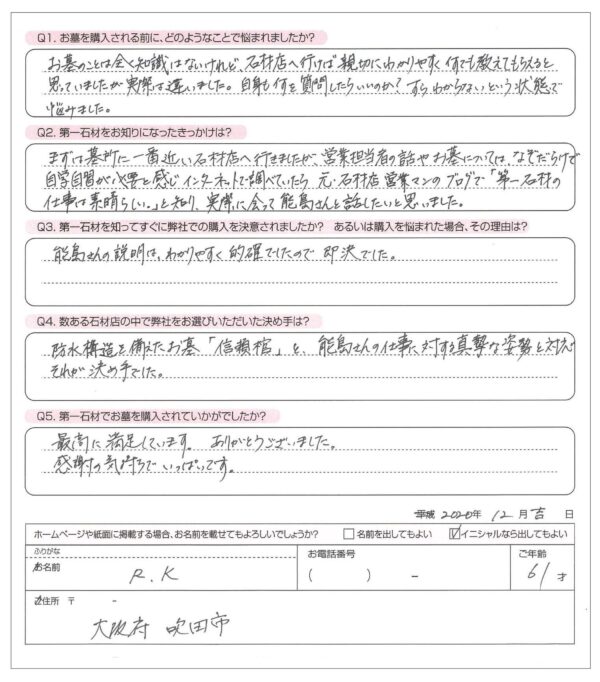 Q1. お墓を購入される前に、どのようなことで悩まれましたか?
お墓のことは全く知識はないけれど、石材店へ行けば親切にわかりやすく何でも教えてもらえると
思っていましたが実際は違いました。自身も何を質問したらいいのか?すらわからないという状態で
悩みました。
Q2. 第一石材をお知りになったきっかけは?
まずは墓所に一番近い石材店へ行きましたが、営業担当者の話やお墓については、なぞだらけで
自学自習が必要と感じインターネットで調べていたら元・石材店営業マンのブログで「第一石材の
仕事は素晴らしい。」と知り、実際に会って能島さんと話したいと思いました。
Q3. 第一石材を知ってすぐに弊社での購入を決意されましたか? あるいは購入を悩まれた場合、その理由は?
能島さんの説明は、わかりやすく的確でしたので即決でした。
Q4. 数ある石材店の中で弊社をお選びいただいた決め手は?
防水構造を備えたお墓「信頼棺」と、能島さんの仕事に対する真摯な姿勢と対応
それが決め手でした。
Q5. 第一石材でお墓を購入されていかがでしたか?
最高に満足しています。 ありがとうございました。
感謝の気持ちでいっぱいです。
平成 2020年 12月 吉 日
ホームページや紙面に掲載する場合、お名前を載せてもよろしいでしょうか? □名前を出してもよい ☑イニシャルなら出してもよい
ふりがな
お名前 R.K
お電話番号
( ) -
ご年齢
61才
ご住所 〒 -
大阪府 吹田市